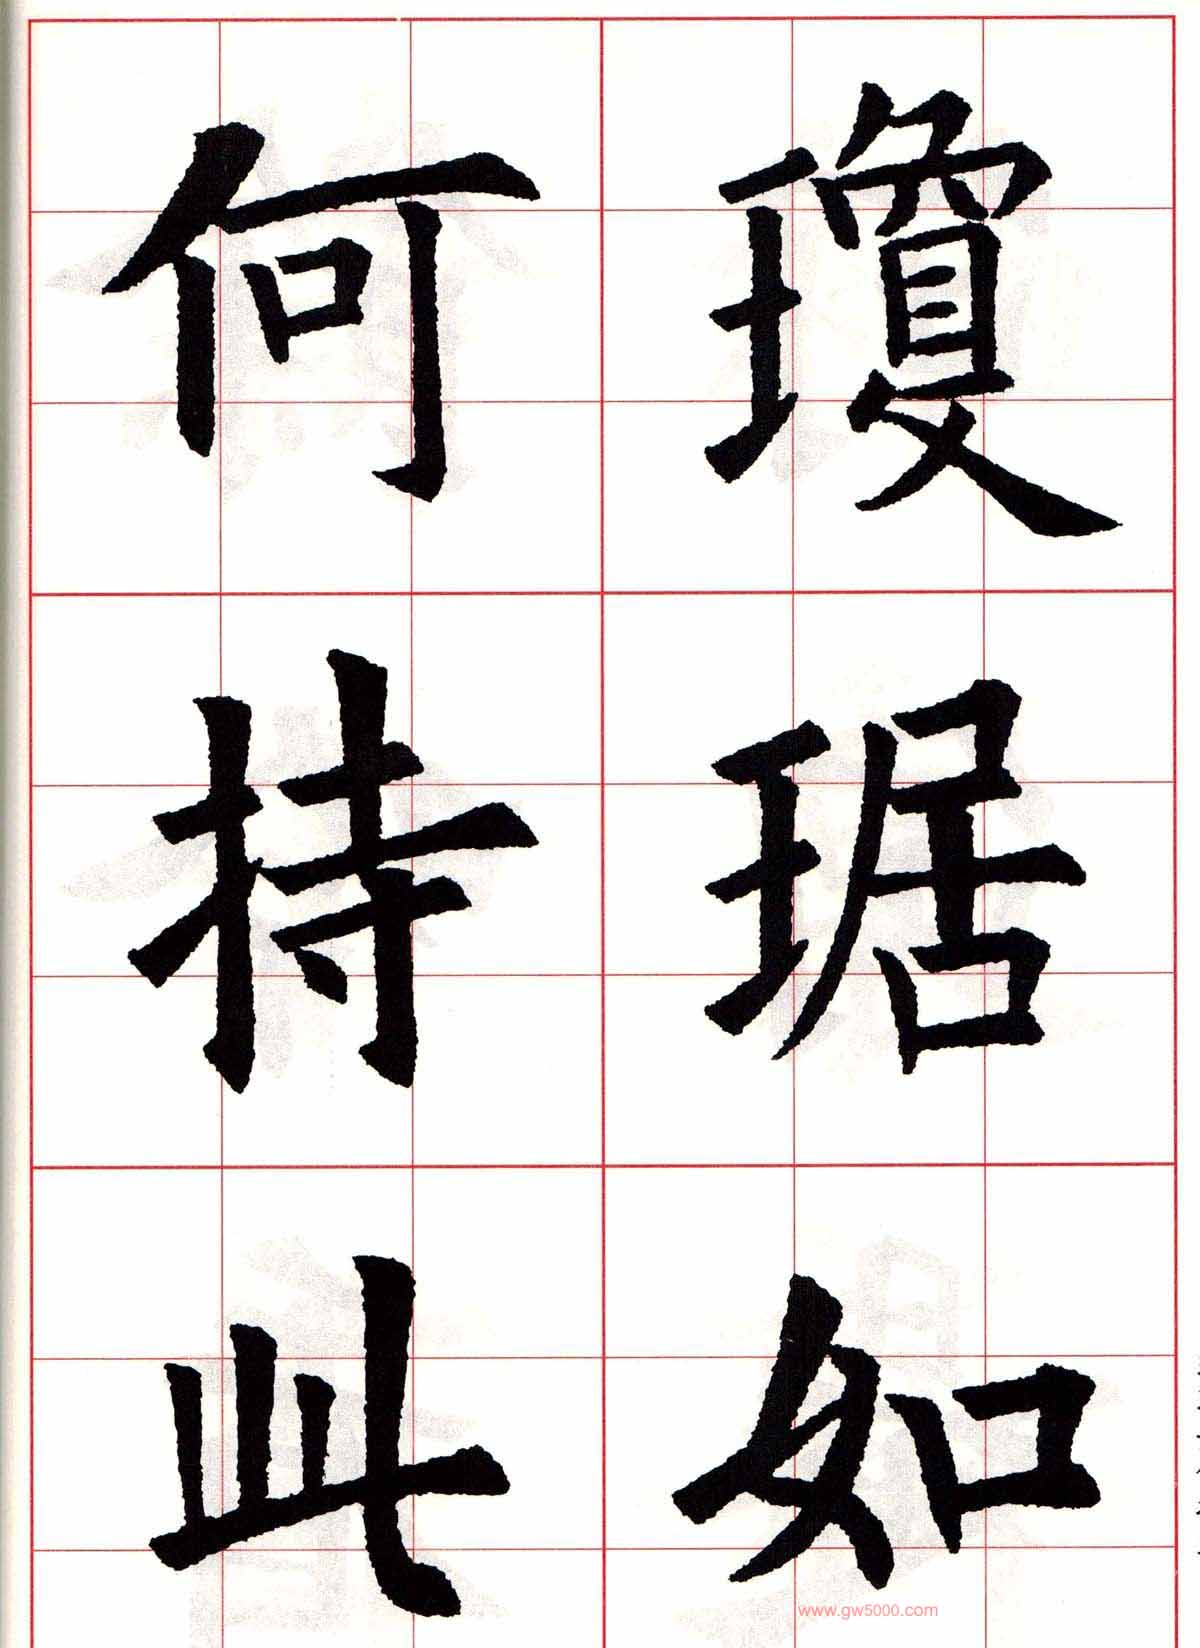 瓊琚如
何持此
www.gw5000.com